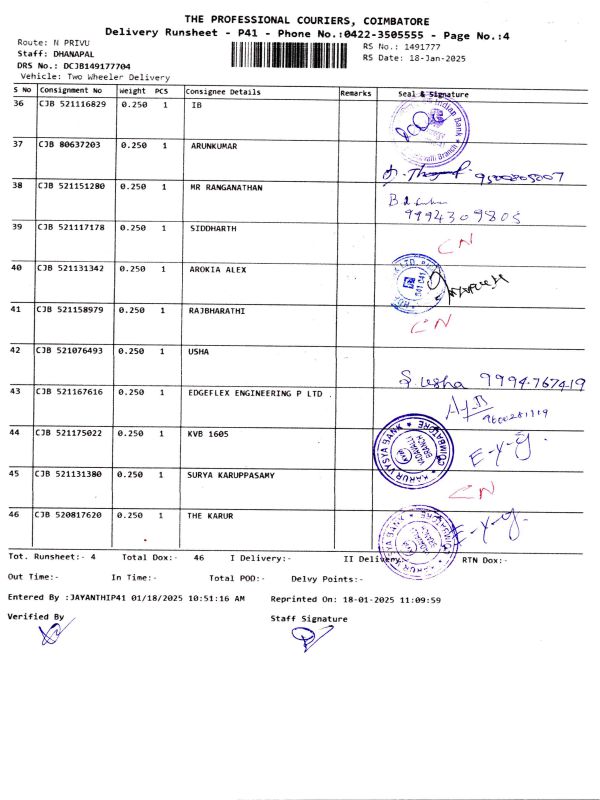 THE PROFESSIONAL COURIERS, COIMBATORE
Delivery Runsheet - P41 - Phone No.:0422-3505555 - Page No.:4
Route: N PRIVU
RS No.: 1491777
Staff: DHANAPAL
RS Date: 18-Jan-2025
DRS No.: DCJB149177704
Vehicle: Two Wheeler Delivery
S No Consignment No Weight PCS Consignee Details Remarks Seal & Signature
36 CJB 521116829 0.250 1 IB
Indian Bank
37 CJB 80637203 0.250 1 ARUNKUMAR
38 CJB 521151280 0.250 1 MR RANGANATHAN
9994309805
39 CJB 521117178 0.250 1 SIDDHARTH CN
40 CJB 521131342 0.250 1 AROKIA ALEX
41 CJB 521158979 0.250 1 RAJBHARATHI CN
42 CJB 521076493 0.250 1 USHA
S. Usha 9994767419
43 CJB 521167616 0.250 1 EDGEFLEX ENGINEERING P LTD .
44 CJB 521175022 0.250 1 KVB 1605
KARUR VYSYA BANK COIMBATORE
VADAVALLI BRANCH
45 CJB 521131380 0.250 1 SURYA KARUPPASAMY CN
46 CJB 520817620 0.250 1 THE KARUR
KARUR VYSYA BANK COIMBATORE
VADAVALLI BRANCH
Tot. Runsheet:- 4 Total Dox:- 46 I Delivery:- II Delivery:- RTN Dox:-
Out Time:- In Time:- Total POD:- Delvy Points:-
Entered By :JAYANTHIP41 01/18/2025 10:51:16 AM Reprinted On: 18-01-2025 11:09:59
Verified By Staff Signature